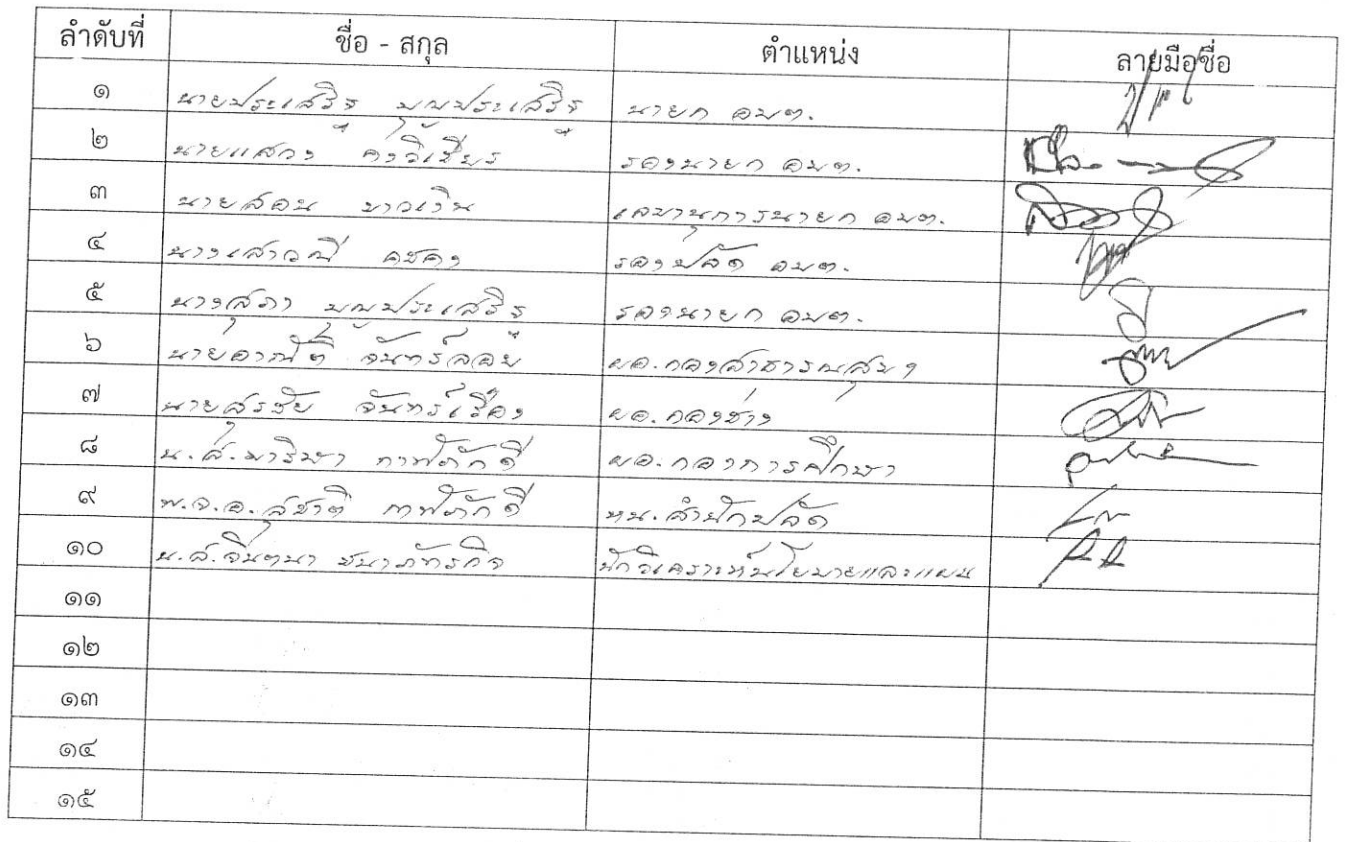 ลำดับที่ ชื่อ - สกุล ตำแหน่ง ลายมือชื่อ
๑ นายประเสริฐ บุญประเสริฐ นายก อบต.
๒ นายแสวง คงวิเชียร รองนายก อบต.
๓ นายสอน ขาวเงิน เลขานุการนายก อบต.
๔ นางเสาวณี คชคง รองปลัด อบต.
๕ นางสุภา บุญประเสริฐ รองนายก อบต.
๖ นายอาณัติ จันทร์ลอย ผอ.กองสาธารณสุขฯ
๗ นายสุรชัย จันทร์เรือง ผอ.กองช่าง
๘ น.ส.มาริษา ภาพักดี ผอ.กองการศึกษา
๙ พ.จ.อ.สุชาติ หน.สำนักปลัด
๑๐ น.ส.จินตนา ธนาภัทรกิจ นักวิเคราะห์นโยบายและแผน
๑๑
๑๒
๑๓
๑๔
๑๕